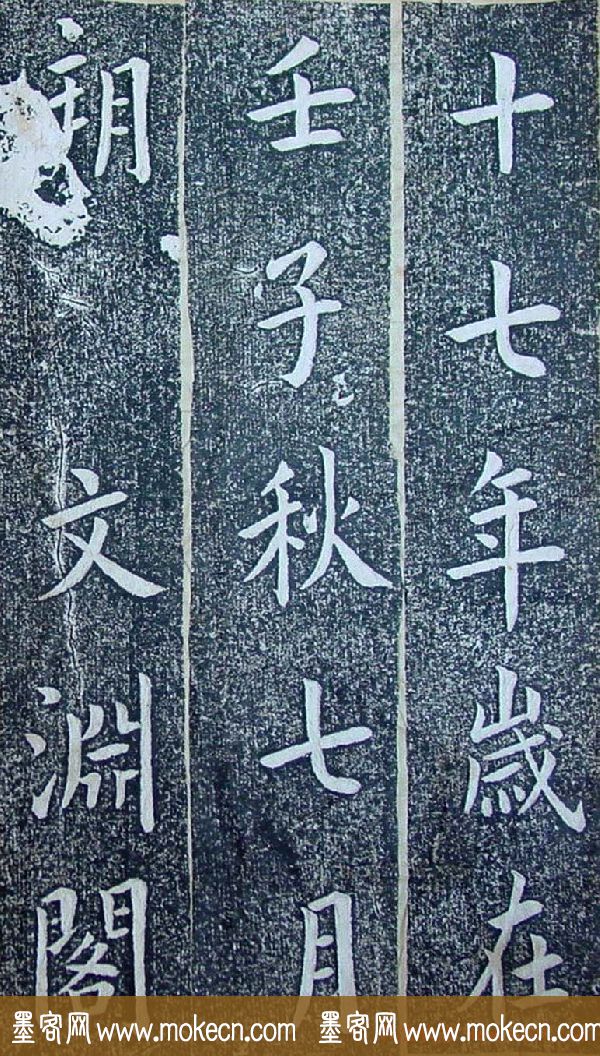 十七年歲在
壬子秋七月
朔文淵閣
墨客网 www.mokecn.com 墨客网 www.mokecn.com